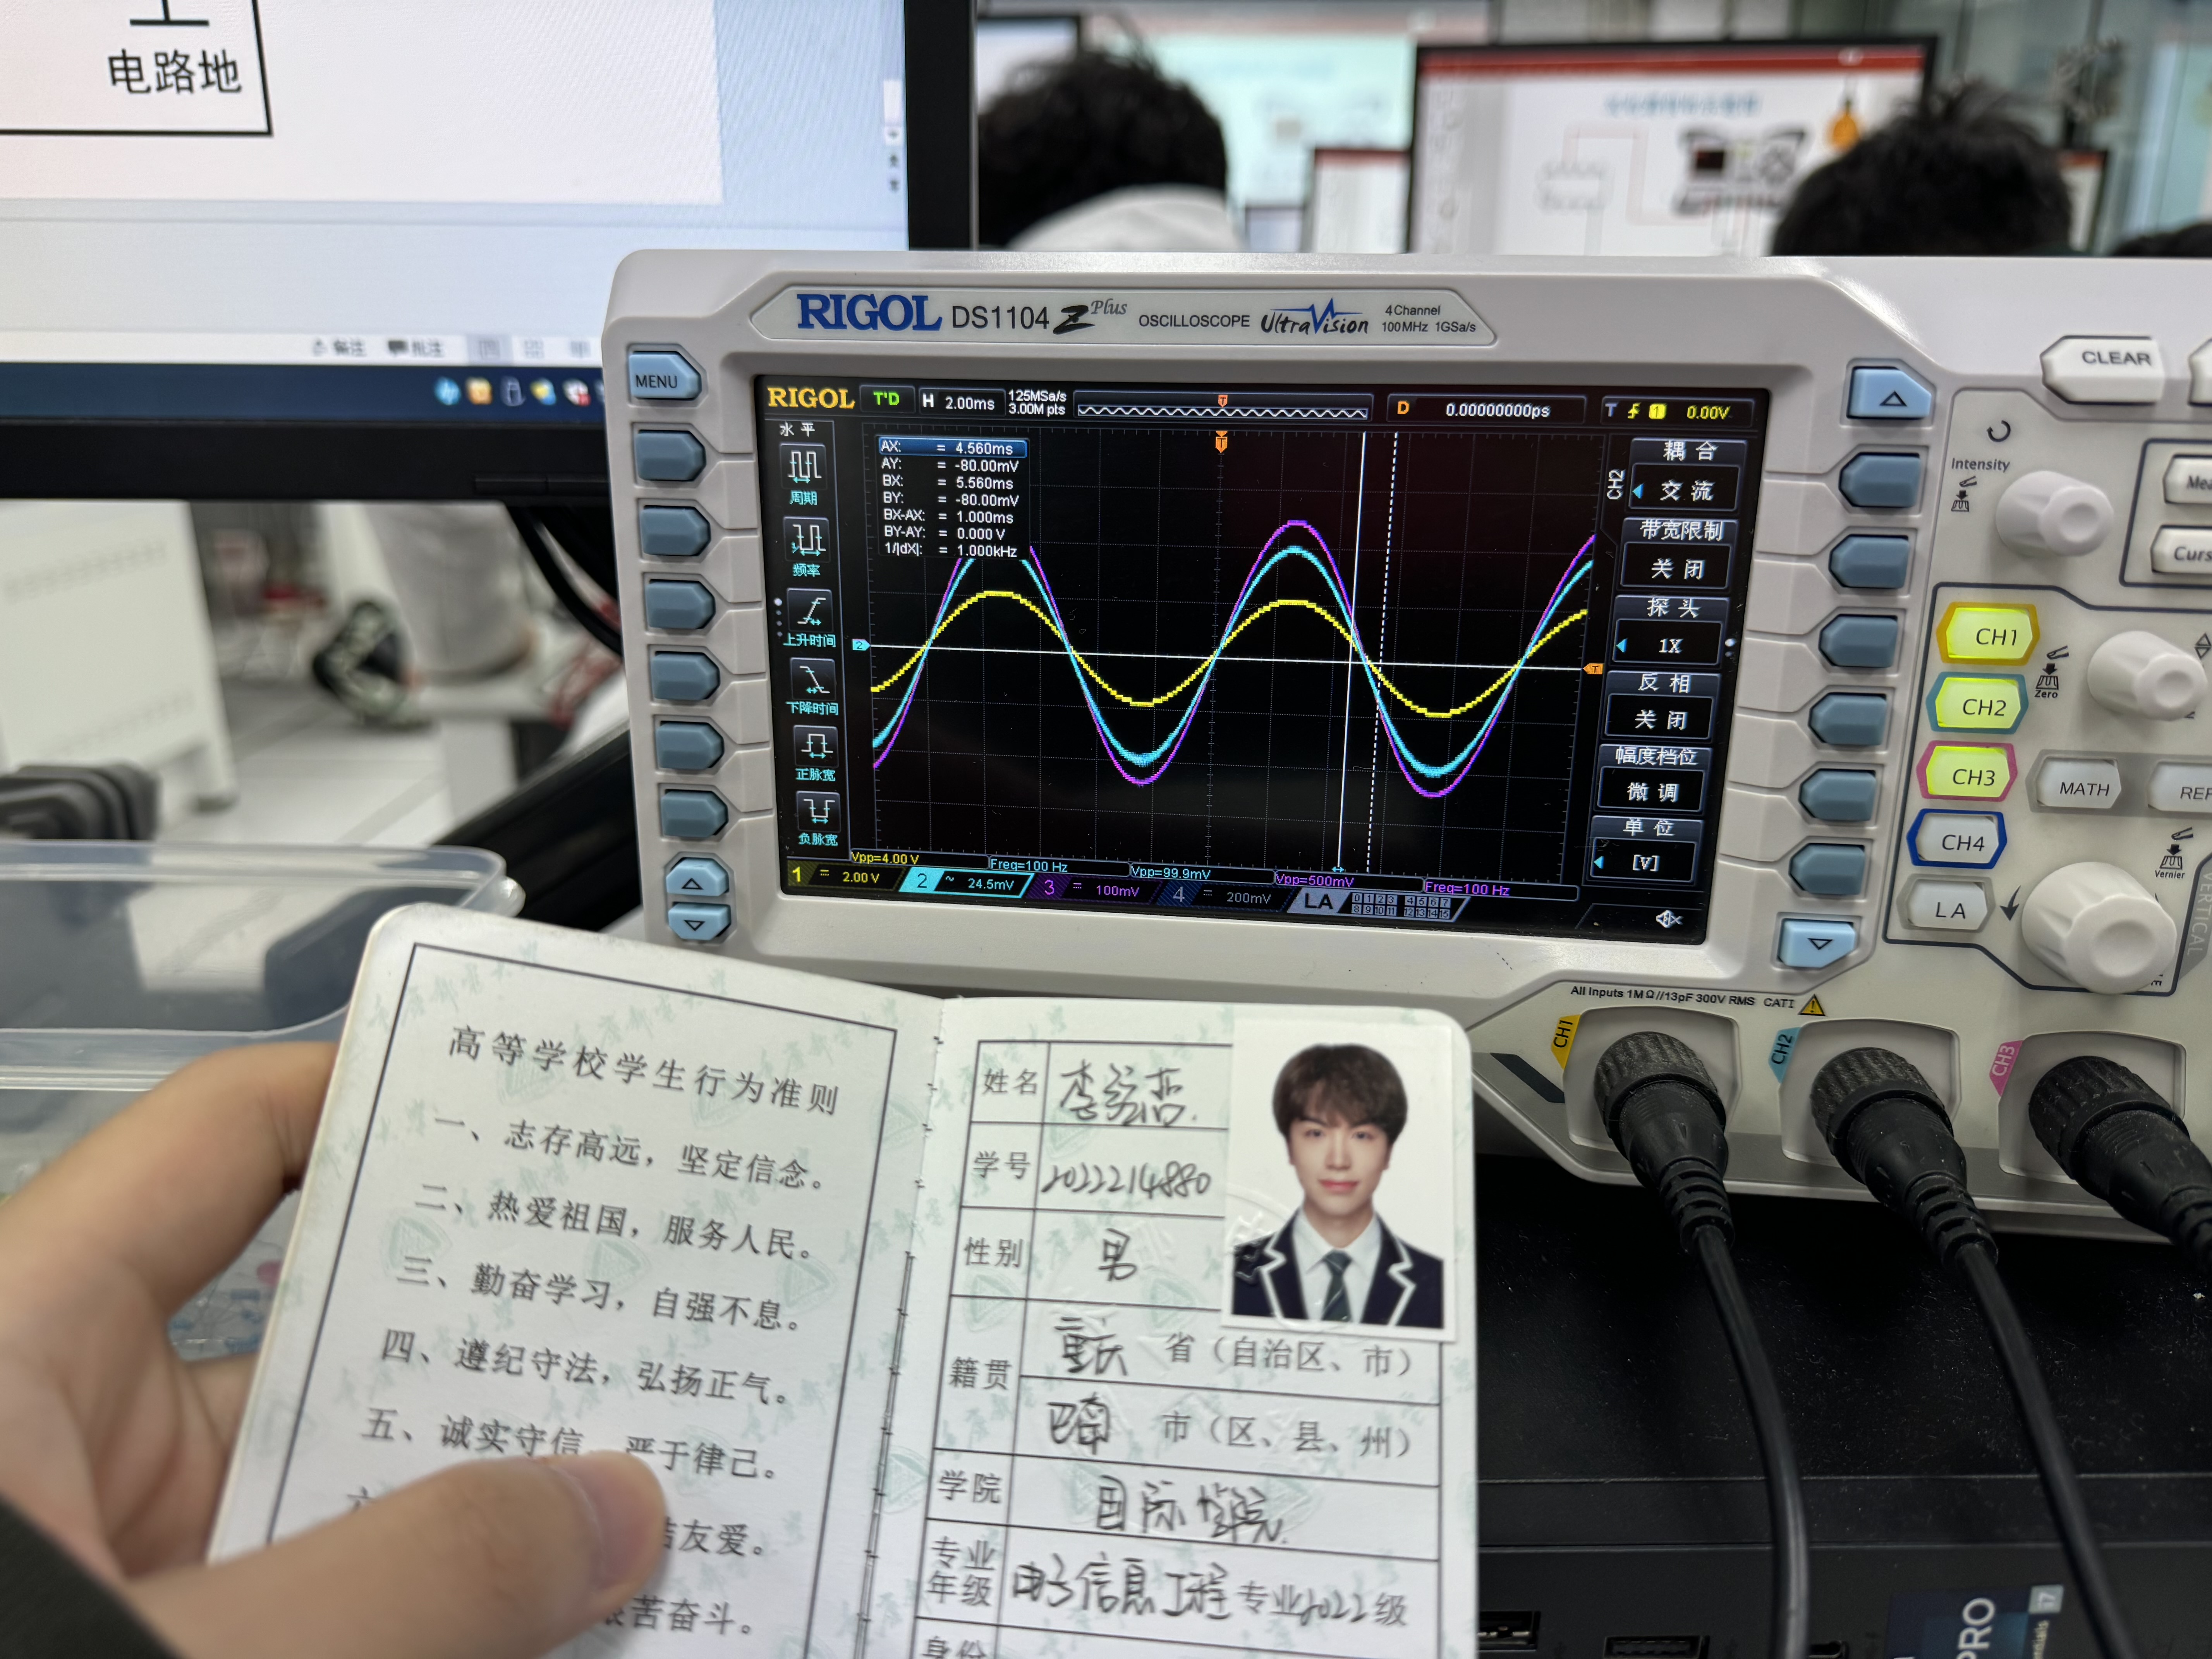 电路地
备注 批注
RIGOL DS1104 Z Plus OSCILLOSCOPE UltraVision 4 Channel 100MHz 1GSa/s
MENU
CLEAR
RIGOL T'D H 2.00ms 125MSa/s 3.00M pts D 0.00000000ps T 1 0.00V
水平
周期
频率
上升时间
下降时间
正脉宽
负脉宽
AX: = 4.560ms
AY: = -80.00mV
BX: = 5.560ms
BY: = -80.00mV
BX-AX: = 1.000ms
BY-AY: = 0.000 V
1/|dX|: = 1.000kHz
CH2
耦合
交流
带宽限制
关闭
探头
1X
反相
关闭
幅度档位
微调
单位
[V]
Vpp=4.00 V Freq=100 Hz Vpp=99.9mV Vpp=500mV Freq=100 Hz
1 = 2.00 V 2 ~ 24.5mV 3 = 100mV 4 = 200mV LA 0 1 2 3 4 5 6 7
8 9 10 11 12 13 14 15
Intensity
Mea
Curs
CH1
Zero
CH2
CH3
MATH
REF
CH4
Vernier
LA
VERTICAL
All Inputs 1MΩ//13pF 300V RMS CATI
CH1
CH2
CH3
高等学校学生行为准则
一、志存高远，坚定信念。
二、热爱祖国，服务人民。
三、勤奋学习，自强不息。
四、遵纪守法，弘扬正气。
五、诚实守信，严于律己。
结友爱。
艰苦奋斗。
姓名 李
学号 2022214880
性别 男
籍贯 重庆 省（自治区、市）
巴南 市（区、县、州）
学院 国际学院
专业年级 电子信息工程 专业2022级
身份
PRO